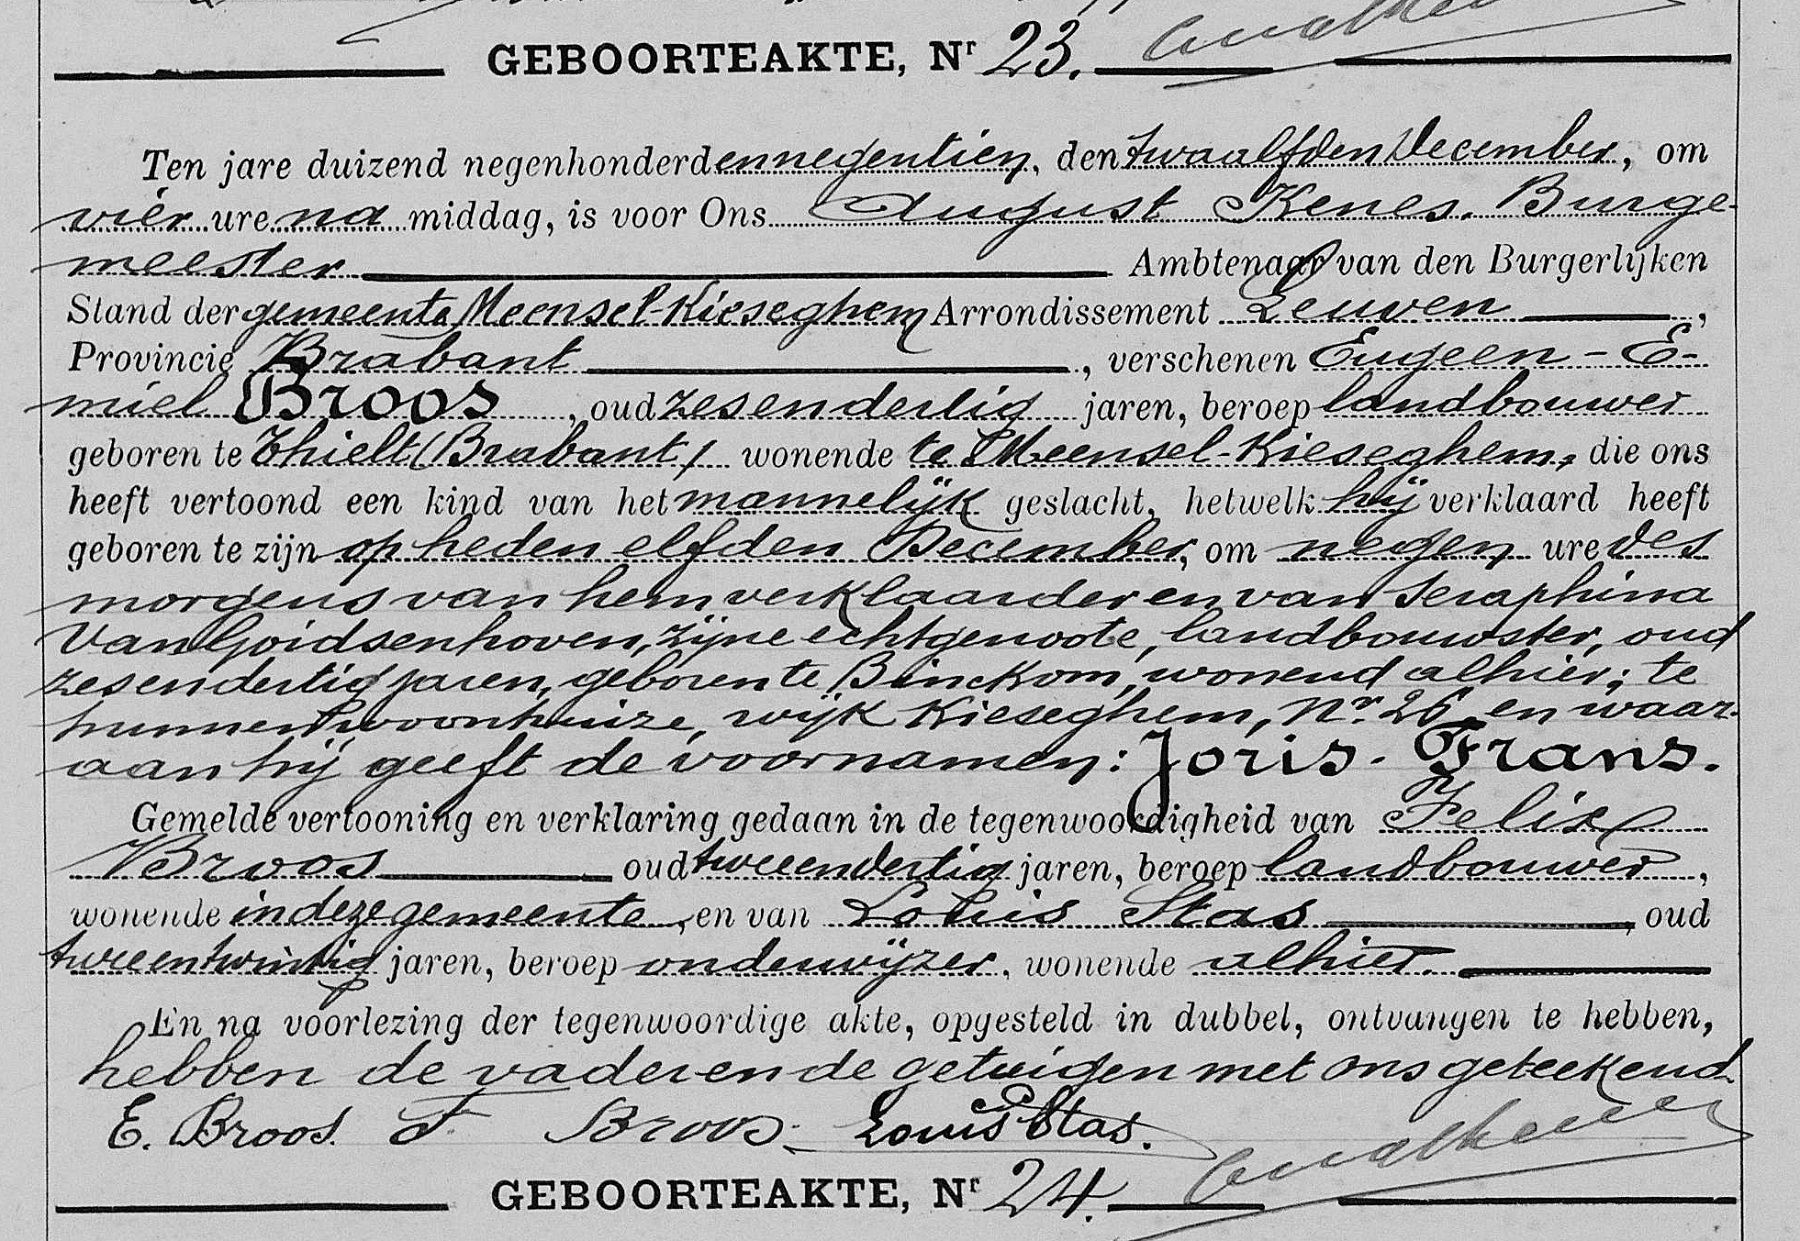 GEBOORTEAKTE, Nr 23.
Ten jare duizend negenhonderd en negentien, den twaalfden December, om
vier ure na middag, is voor Ons August Kenes, Burge-
meester Ambtenaar van den Burgerlijken
Stand der gemeente Meensel-Kieseghem Arrondissement Leuven,
Provincie Brabant, verschenen Eugeen-E-
miel Broos, oud zesendertig jaren, beroep landbouwer
geboren te Thielt (Brabant) wonende te Meensel-Kieseghem, die ons
heeft vertoond een kind van het mannelijk geslacht, hetwelk hij verklaard heeft
geboren te zijn op heden elfden December, om negen ure des
morgens van hem verklaarder en van Seraphina
Van Goidsenhoven, zijne echtgenoote, landbouwster, oud
zesendertig jaren, geboren te Binckom, wonend alhier; te
hunnen woonhuize, wijk Kieseghem, Nr. 26 en waar-
aan hij geeft de voornamen: Joris-Frans.
Gemelde vertooning en verklaring gedaan in de tegenwoordigheid van Felix
Broos oud tweeendertig jaren, beroep landbouwer,
wonende in deze gemeente, en van Louis Stas, oud
tweeentwintig jaren, beroep onderwijzer, wonende alhier.
En na voorlezing der tegenwoordige akte, opgesteld in dubbel, ontvangen te hebben,
hebben de vader en de getuigen met ons geteekend
E. Broos. F. Broos. Louis Stas.
GEBOORTEAKTE, Nr 24.